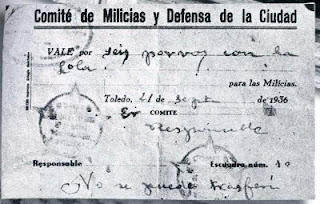 Comité de Milicias y Defensa de la Ciudad
VALE por seis porvos con la
Lola
para las Milicias.
Toledo, 21 de Septe de 1936
Er COMITE
Responsable
Responsable Escuadra núm. 10
No se puede trasferi